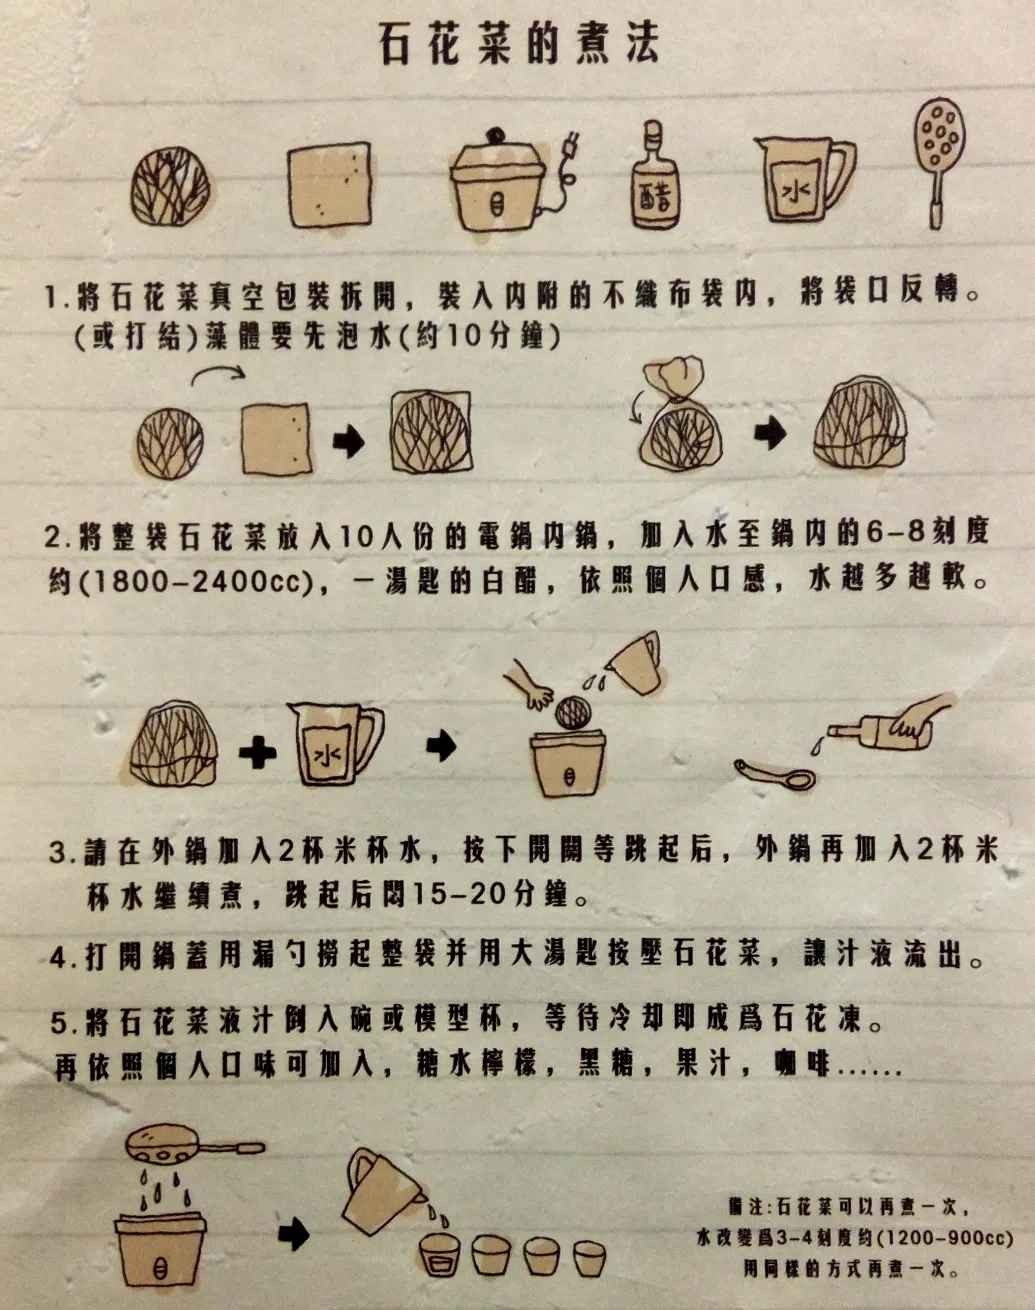 石花菜的煮法
醋
水
1.將石花菜真空包裝拆開，裝入内附的不織布袋内，將袋口反轉。
(或打結)藻體要先泡水(約10分鐘)
2.將整袋石花菜放入10人份的電鍋内鍋，加入水至鍋内的6-8刻度
約(1800-2400cc)，一湯匙的白醋，依照個人口感，水越多越軟。
水
3.請在外鍋加入2杯米杯水，按下開關等跳起后，外鍋再加入2杯米
杯水繼續煮，跳起后悶15-20分鐘。
4.打開鍋蓋用漏勺撈起整袋并用大湯匙按壓石花菜，讓汁液流出。
5.將石花菜液汁倒入碗或模型杯，等待冷却即成爲石花凍。
再依照個人口味可加入，糖水檸檬，黑糖，果汁，咖啡......
備注:石花菜可以再煮一次，
水改變爲3-4刻度約(1200-900cc)
用同樣的方式再煮一次。